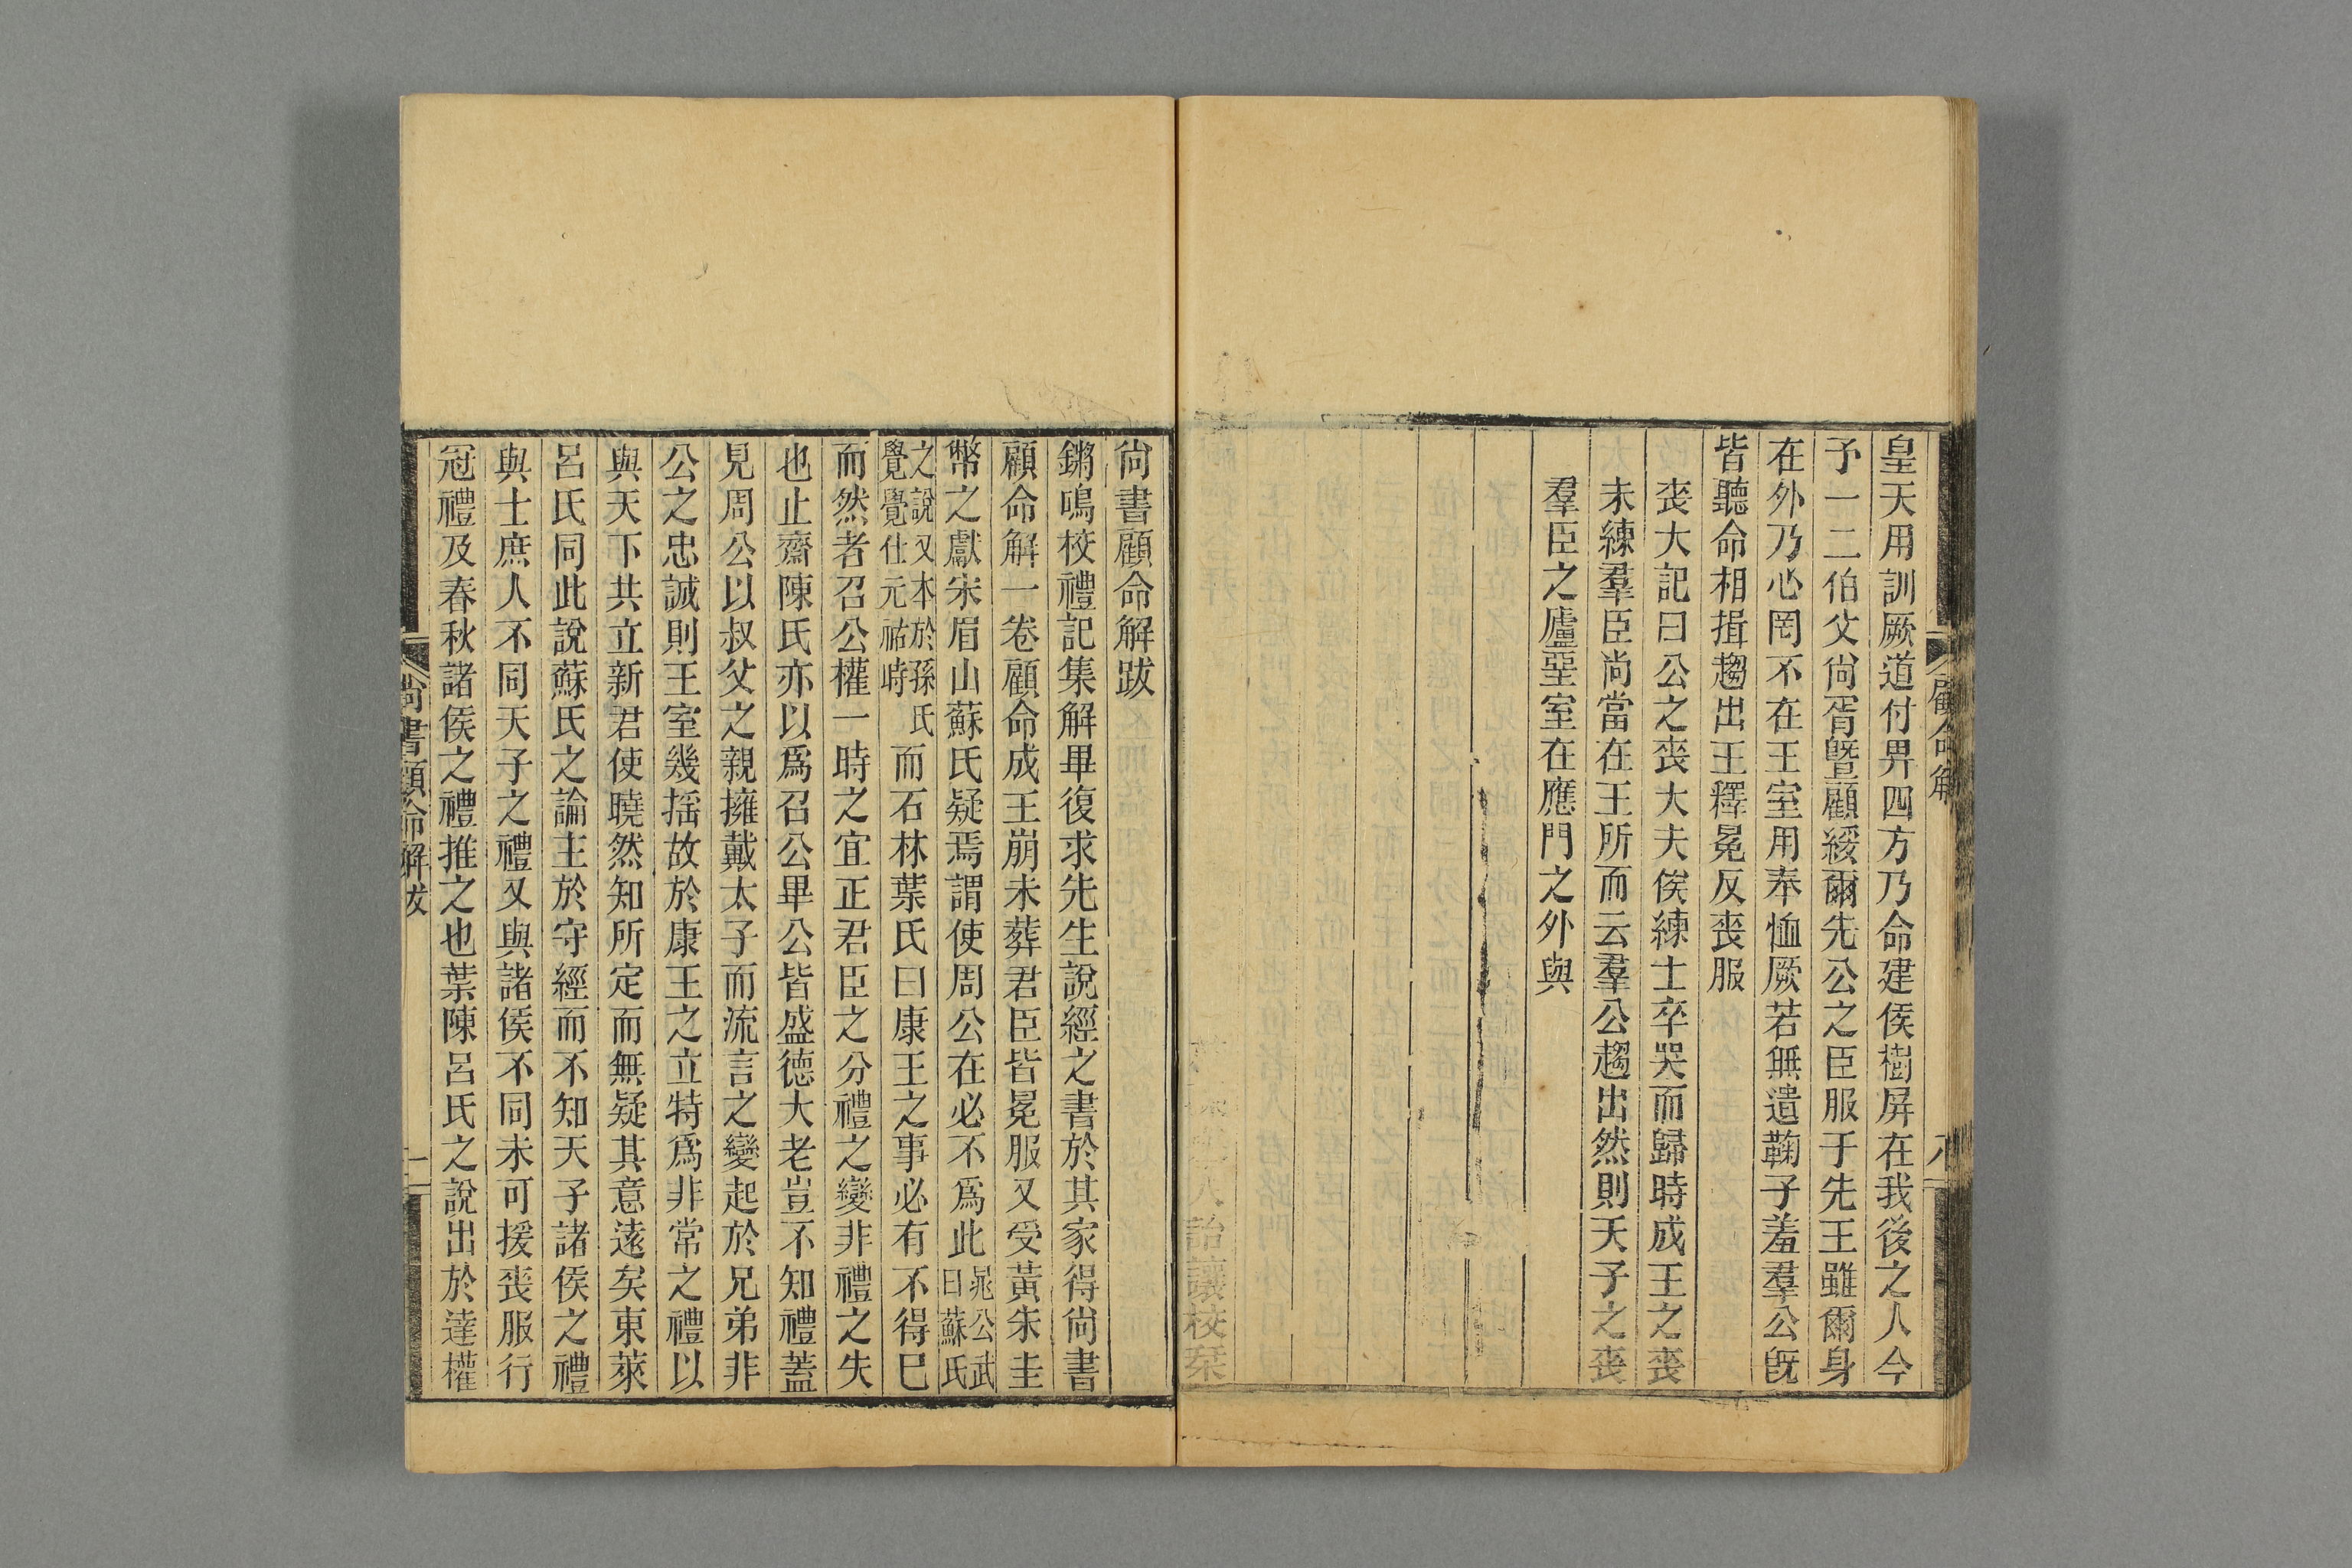 皇天用訓厥道付畀四方乃命建侯樹屏在我後之人今
予一二伯父尙胥曁顧綏爾先公之臣服于先王雖爾身
在外乃心罔不在王室用奉恤厥若無遺鞠子羞羣公旣
皆聽命相揖趨出王釋冕反喪服
喪大記曰公之喪大夫俟練士卒哭而歸時成王之喪
未練羣臣尙當在王所而云羣公趨出然則天子之喪
羣臣之廬堊室在應門之外與
詒讓校栞
顧命解
八
尙書顧命解跋
鏘鳴校禮記集解畢復求先生說經之書於其家得尙書
顧命解一卷顧命成王崩未葬君臣皆冕服又受黃朱圭
幣之獻宋眉山蘇氏疑焉謂使周公在必不爲此晁公武曰蘇氏
之說又本於孫氏覺覺仕元祐時而石林葉氏曰康王之事必有不得已
而然者召公權一時之宜正君臣之分禮之變非禮之失
也止齋陳氏亦以爲召公畢公皆盛德大老豈不知禮蓋
見周公以叔父之親擁戴太子而流言之變起於兄弟非
公之忠誠則王室幾揺故於康王之立特爲非常之禮以
與天下共立新君使曉然知所定而無疑其意遠矣東萊
呂氏同此說蘇氏之論主於守經而不知天子諸侯之禮
與士庶人不同天子之禮又與諸侯不同未可援喪服行
冠禮及春秋諸侯之禮推之也葉陳呂氏之說出於達權
尙書顧命解跋
一